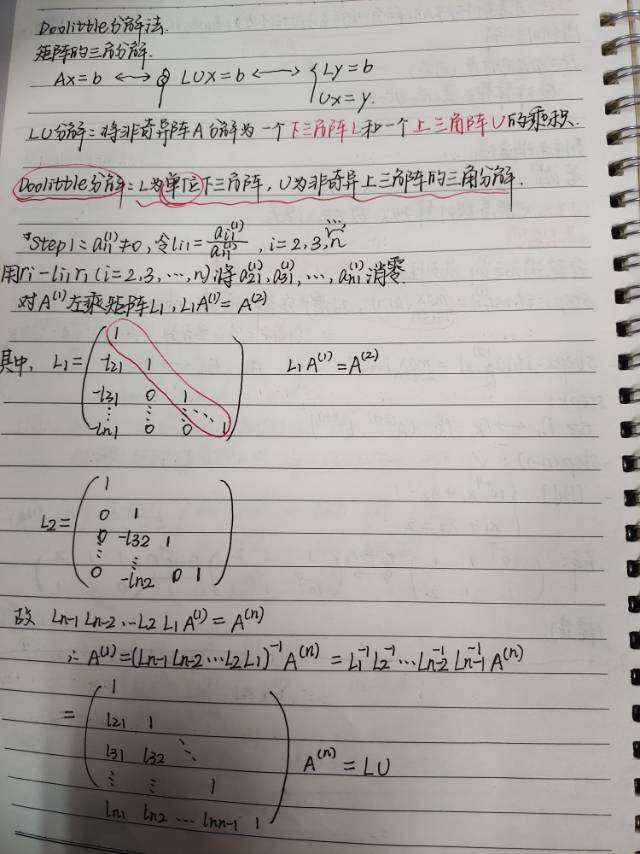 Doolittle分解法.
矩阵的三角分解.
Ax=b ⟷ LUX=b ⟷ { Ly=b
Ux=y.
LU分解:将非奇异阵A分解为一个下三角阵L和一个上三角阵U的乘积.
Doolittle分解:L为单位下三角阵,U为非奇异上三角阵的三角分解.
Step1: a₁₁⁽¹⁾≠0,令li1=ai1⁽¹⁾/a₁₁⁽¹⁾, i=2,3,…,n
用ri-li1r1(i=2,3,…,n)将a21⁽¹⁾,a31⁽¹⁾,…,an1⁽¹⁾消零.
对A⁽¹⁾左乘矩阵L1, L1A⁽¹⁾=A⁽²⁾
其中, L1= ( 1
-l21 1
-l31 0 1
⋮ ⋮ ⋮ ⋱
-ln1 0 0 1 ) L1A⁽¹⁾=A⁽²⁾
L2= ( 1
0 1
0 -l32 1
⋮ ⋮
0 -ln2 0 1 )
故 Ln-1 Ln-2 … L2 L1 A⁽¹⁾=A⁽ⁿ⁾
∴ A⁽¹⁾=(Ln-1 Ln-2 … L2 L1)⁻¹ A⁽ⁿ⁾ = L1⁻¹ L2⁻¹ … Ln-2⁻¹ Ln-1⁻¹ A⁽ⁿ⁾
= ( 1
l21 1
l31 l32 ⋱
⋮ ⋮ 1
ln1 ln2 … lnn-1 1 ) A⁽ⁿ⁾ = LU